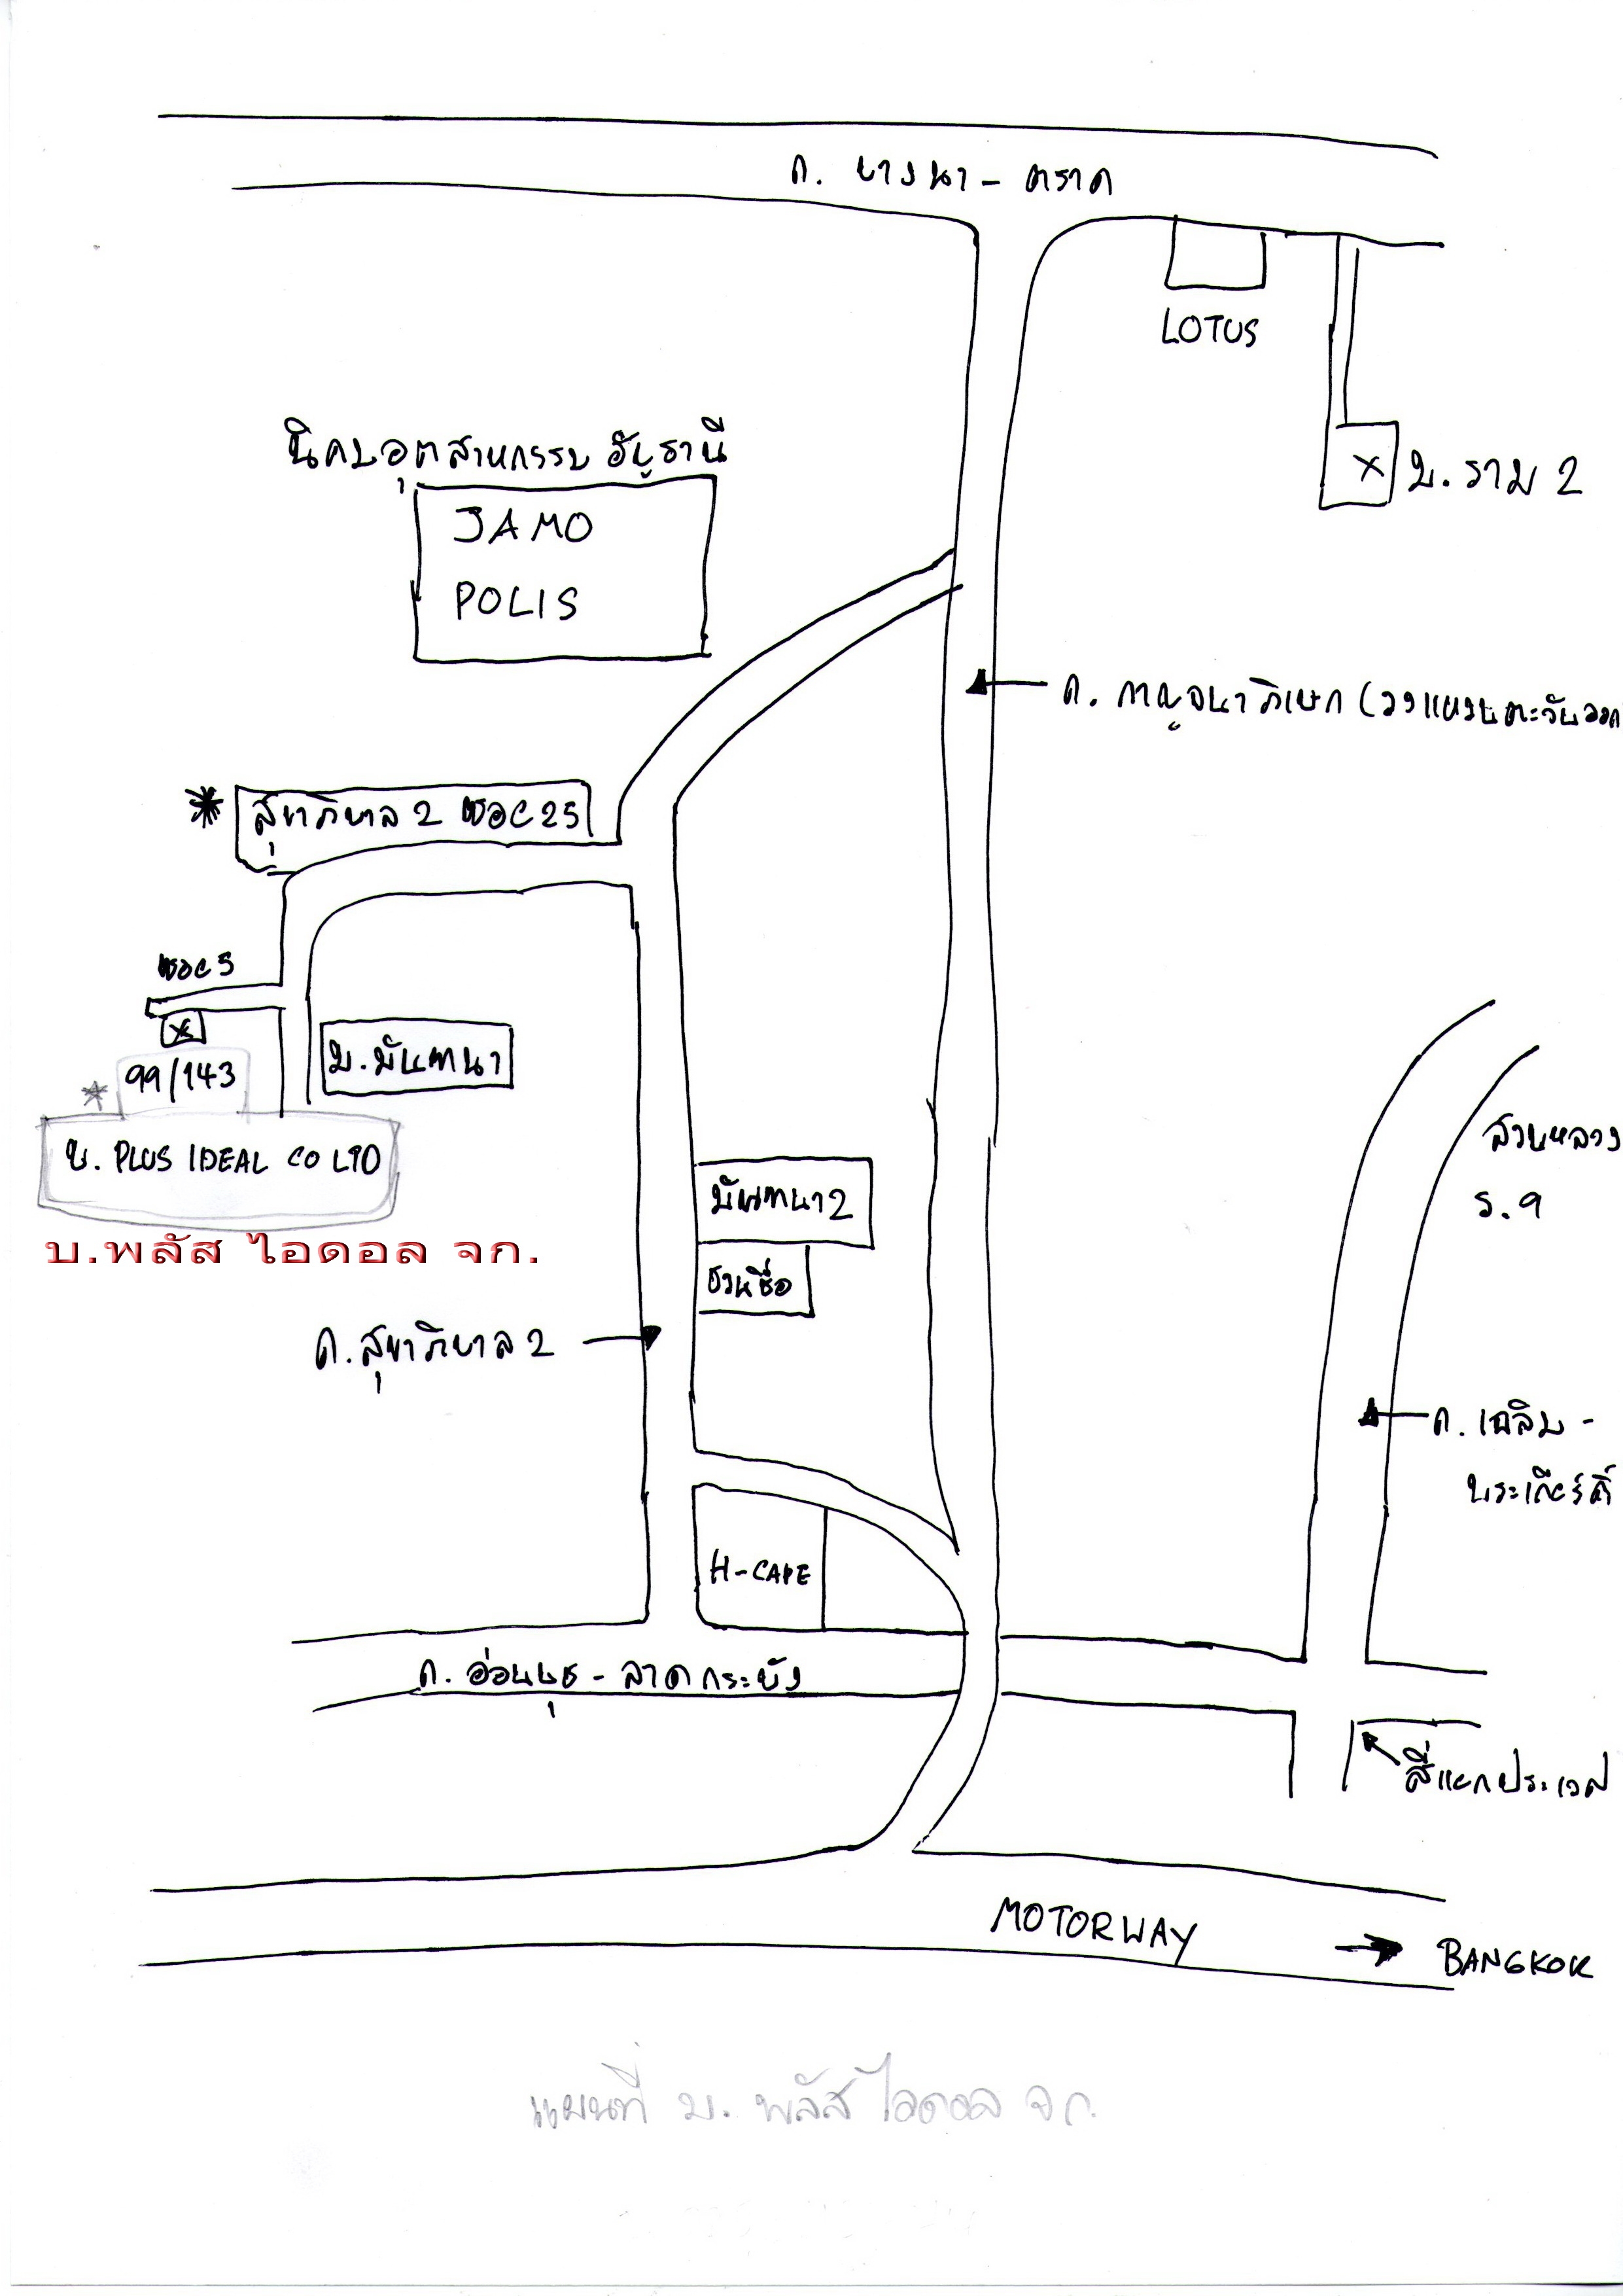 ถ. บางนา - ตราด
LOTUS
นิคมอุตสาหกรรม อัญธานี
JAMO
POLIS
ม. ราม 2
ถ. กาญจนาภิเษก (วงแหวนตะวันออก
* สุขาภิบาล 2 ซอย 25
ซอย 5
X
99/143
*
ม. มัณฑนา
บ. PLUS IDEAL CO LTD
บ.พลัส ไอดอล จก.
มัณฑนา 2
ชวนชื่อ
สวนหลวง
ร. 9
ถ. สุขาภิบาล 2
ถ. เฉลิม -
พระเกียรติ์
H-CAPE
ถ. อ่อนนุช - ลาดกระบัง
สี่แยกประเวศ
MOTORWAY
BANGKOK
แผนที่ บ. พลัส ไอดอล จก.